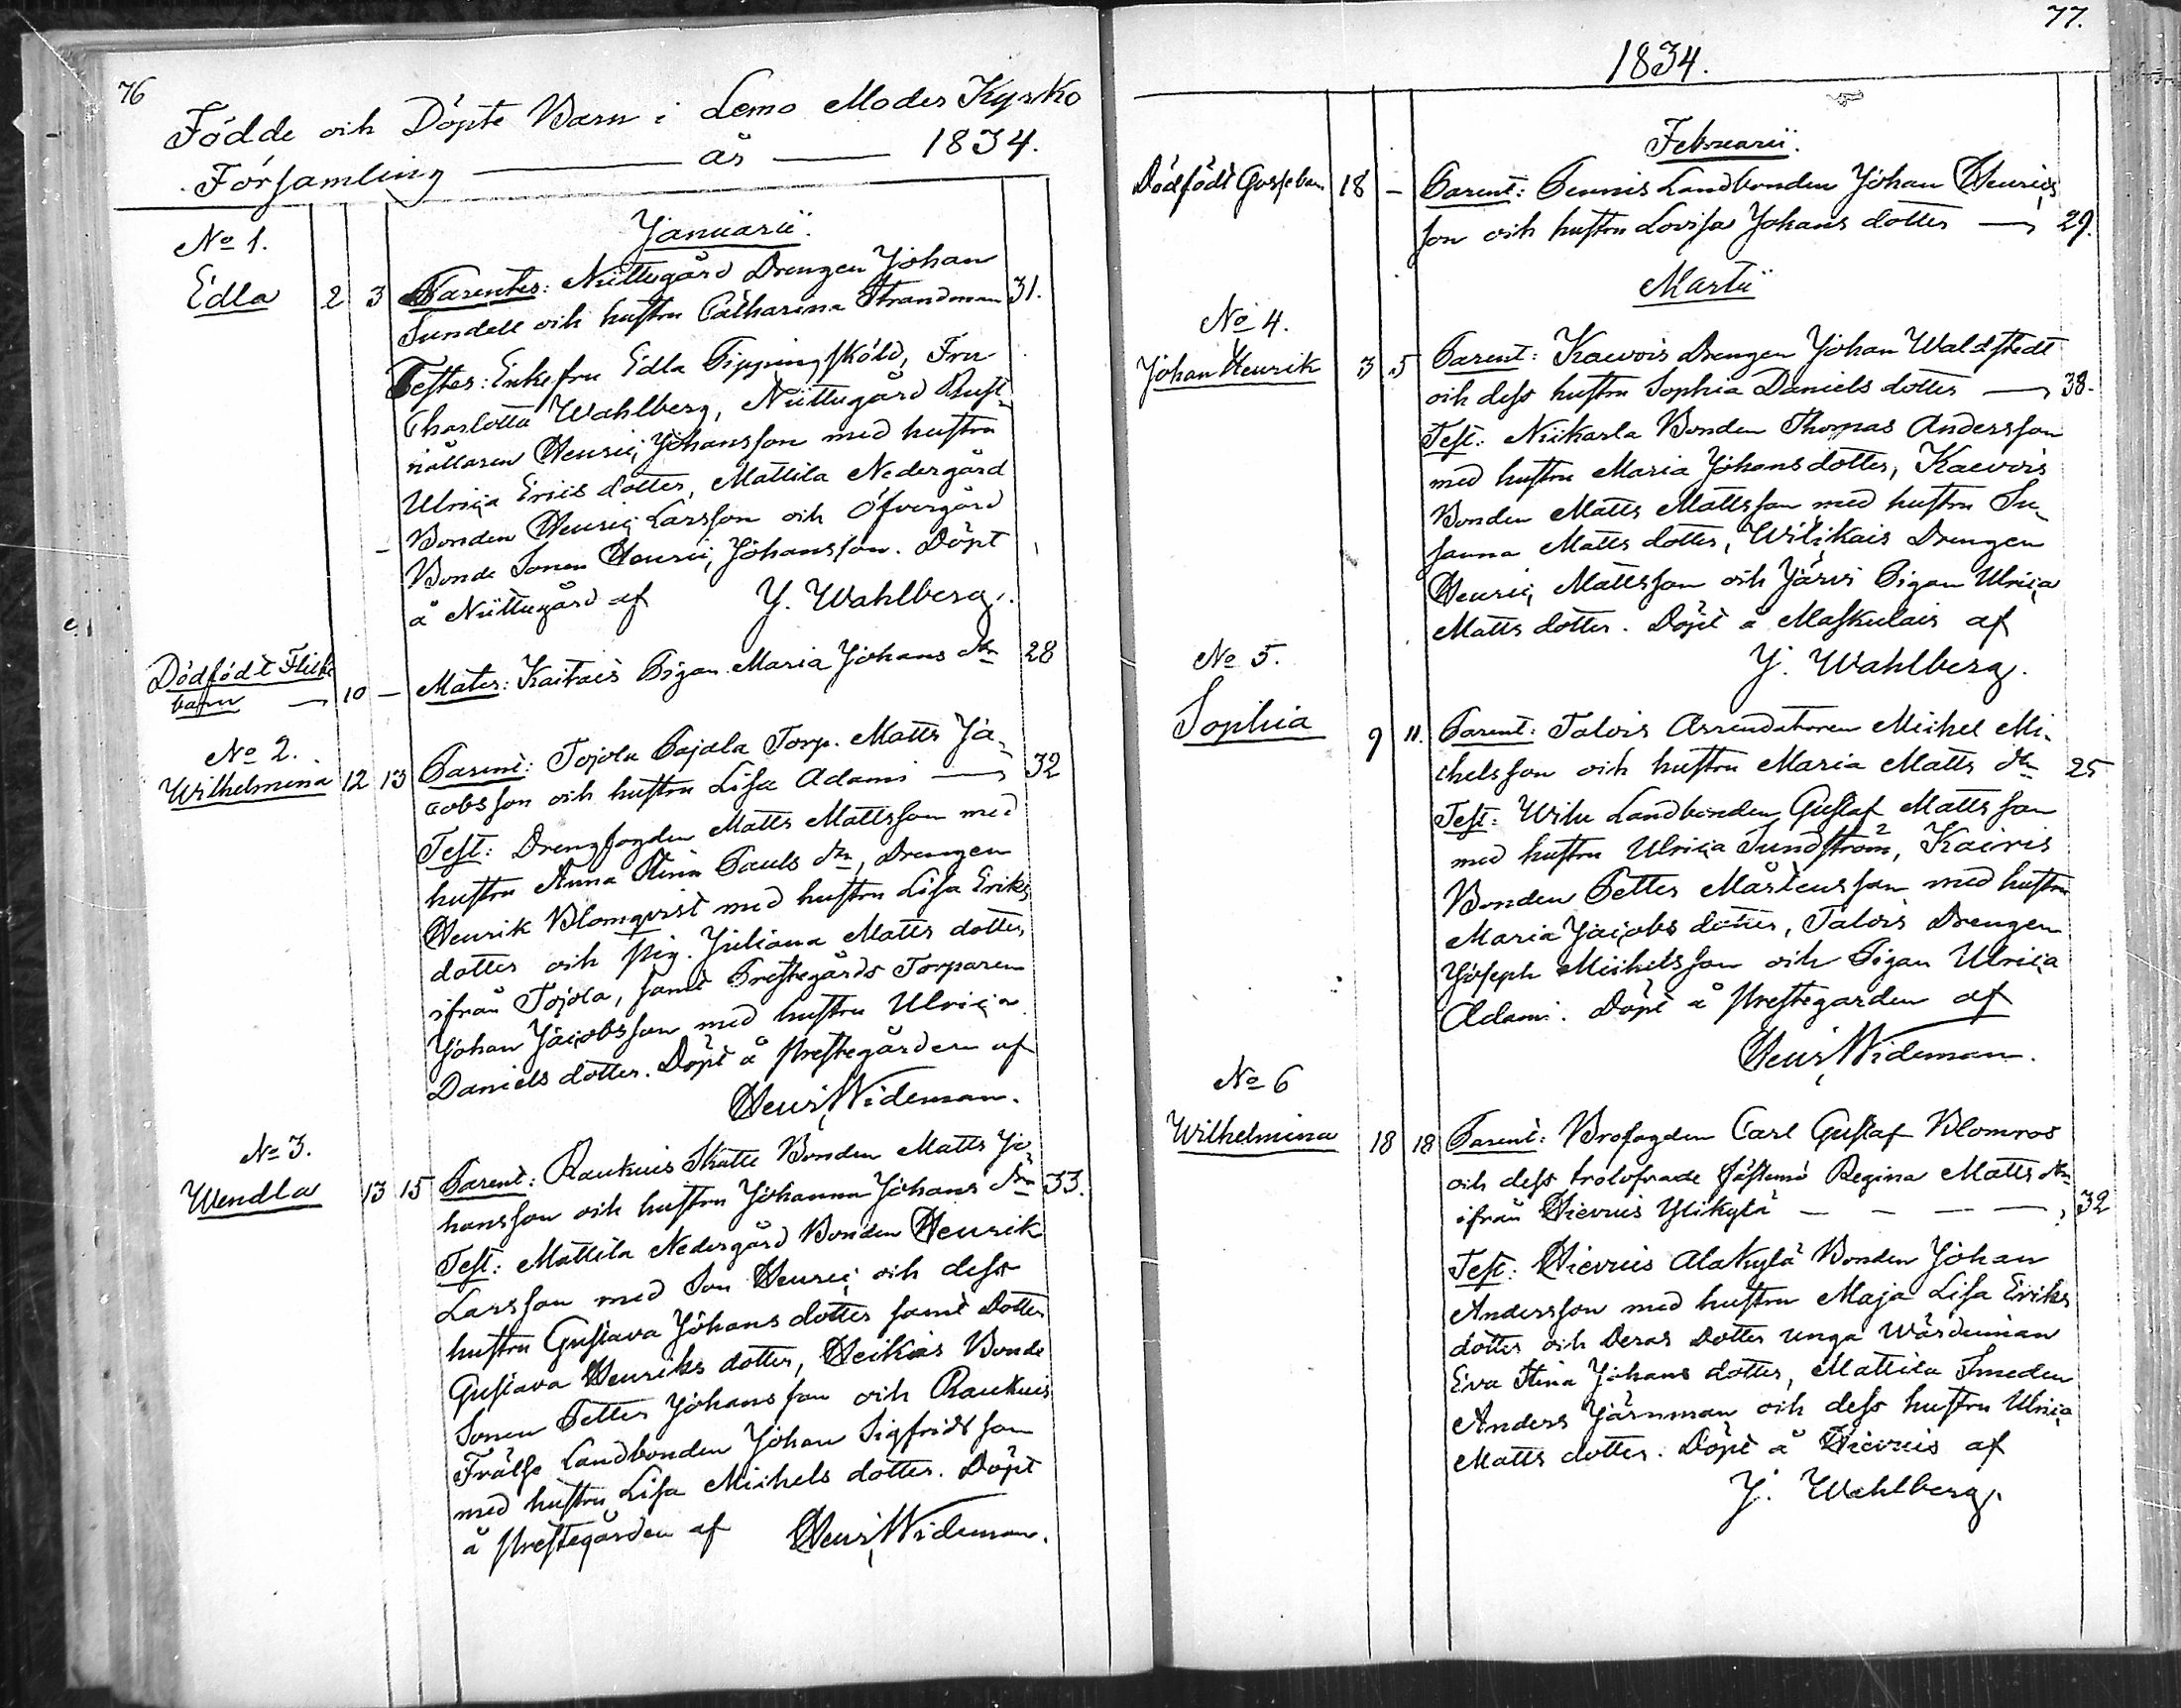 76
Födde och Döpte Barn i Lemo Moder Kyrko
Församling år 1834.
Januarii.
No 1.
Edla 2 3 Parentes: Niittugård Drengen Johan 31.
Sundell och hustru Catharina Strandman
Testes: Enkefru Edla Tippingsköld, Fru
Charlotta Wahlberg, Niittugård Rust-
hållaren Henric Johansson med hustru
Ulrica Erics dotter, Mattila Nedergård
Bonden Henric Larsson och Öfvergård
Bonde Sonen Henric Johansson. Döpt
å Niittugård af J. Wahlberg.
Dödfödt Flicke
barn 10 — Mater: Kaitais Pigan Maria Johans dr 28
No 2.
Wilhelmina 12 13 Parent: Tojola Pajala Torp. Matts Ja-
cobsson och hustru Lisa Adami — 32
Test: Drengfogden Matts Mattsson med
hustru Anna Stina Pauls dr, Drengen
Henrik Blomqvist med hustru Lisa Eriks
dotter och pig. Juliana Matts dotter
ifrån Tojola, samt Prestegårds Torparen
Johan Jacobsson med hustru Ulrica
Daniels dotter. Döpt å Prestegården af
Henr. Wideman.
No 3.
Wendla 13 15 Parent: Raukuis Skatte Bonden Matts Jo-
hansson och hustru Johanna Johans dr 33.
Test: Mattila Nedergård Bonden Henrik
Larsson med Son Henric och dess
hustru Gustava Johans dotter samt Dotter
Gustava Henriks dotter, Heikois Bonde
Sonen Petter Johansson och Raukuis
Frälse Landbonden Johan Sigfridsson
med hustru Lisa Michels dotter. Döpt
å Prestegården af Henr. Wideman.
77.
1834.
Februarii.
Dödfödt Gossebarn 18 — Parent: Pennis Landbonden Johan Henrics
son och hustru Lovisa Johans dotter — 29.
Martii
No 4.
Johan Henrik 3 5 Parent: Kaevois Drengen Johan Waldstedt
och dess hustru Sophia Daniels dotter — 38.
Test: Niikarla Bonden Thomas Andersson
med hustru Maria Johans dotter, Kaevois
Bonden Matts Mattsson med hustru Su-
sanna Matts dotter, Wilikais Drengen
Henric Mattsson och Järvi Pigan Ulrica
Matts dotter. Döpt å Maskulais af
J. Wahlberg.
No 5.
Sophia 9 11. Parent: Talois Arrendatoren Michel Mi-
chelsson och hustru Maria Matts dr 25
Test: Wilu Landbonden Gustaf Mattsson
med hustru Ulrica Sundström, Kairis
Bonden Petter Mårtensson med hustru
Maria Jacobs dotter, Talois Drengen
Joseph Michelsson och Pigan Ulrica
Adami. Döpt å Prestegarden af
Henr. Wideman.
No 6
Wilhelmina 18 18 Parent: Brofogden Carl Gustaf Blomros
och dess trolofvade fästemö Regina Matts dr
ifrån Hievuis Ylikylä — — — — 32
Test: Hievuis Alakylä Bonden Johan
Andersson med hustru Maja Lisa Eriks
dotter och Deras Dotter unga Wärdinnan
Eva Stina Johans dotter, Mattila Smeden
Anders Järnman och dess hustru Ulrica
Matts dotter. Döpt å Hievuis af
J. Wahlberg.